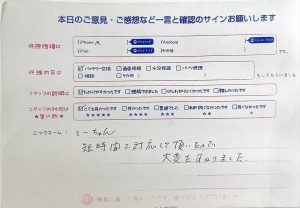 本日のご意見・ご感想など一言と確認のサインお願いします
修理機種は
iPhone X
Android
iPad
その他
修理内容は
バッテリー交換 画面修理 水没修理 パーツ修理
その他
をしてもらいました
スタッフの説明は
わかりやすかったです 理解できました 少しわかりにくかったです 難しかったです
スタッフの対応は
★星の数★
とても良かったです 良かったです 普通でした 良くなかったです
★★★★★ ★★★★ ★★★ ★★ ★
ニックネーム:
ミーちゃん
短時間で対応して頂いたので
大変たすかりました。